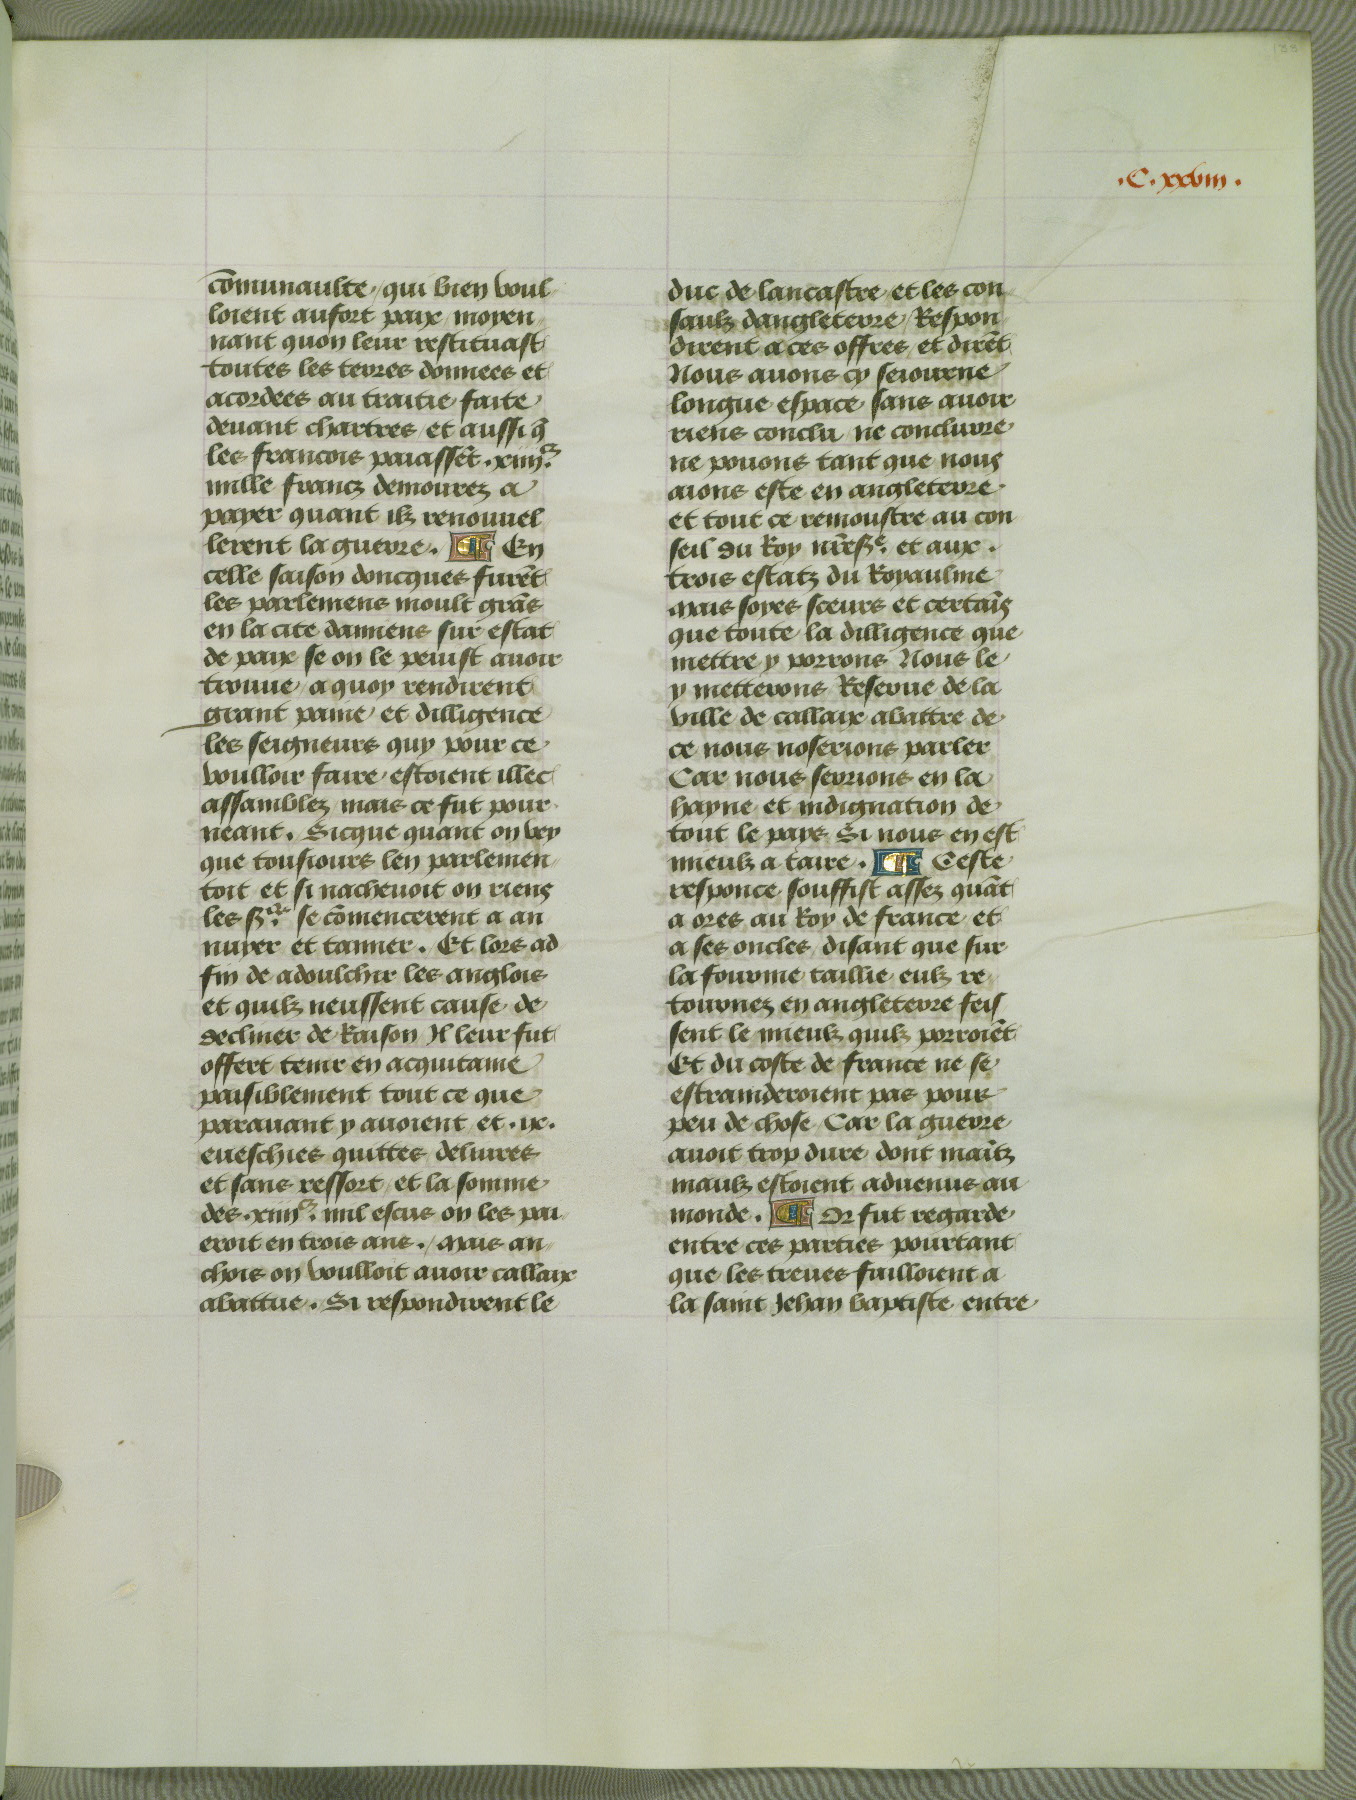 .C.xxviii.
cōmunaulte qui bien voul
loient aufort paix moyen
nant quon leur restituast
toutes les terres donnees et
acordees au traitie faite
deuant chartres et aussi q̄
les francois paiassēt .xiiii.c
mille francz demourez a
payer quant ilz renouuel
lerent la guerre. ¶ En
celle saison doncques furēt
les parlemens moult grās
en la cite damiens sur estat
de paix se on le peuist auoir
trouue a quoy rendirent
grant paine et dilligence
les seigneurs quy pour ce
voulloir faire estoient illec
assamblez mais ce fut pour
neant. Sicque quant on vey
que tousiours len parlemen
toit et si nacheuoit on riens
les srs. se cōmencerent a an
nuyer et tanner. Et lors ad
fin de adoulchir les anglois
et quilz neussent cause de
decliner de Raison Il leur fut
offert tenir en acquitaine
paisiblement tout ce que
parauant y auoient et .ix.
eueschies quittes deliures
et sans ressort et la somme
des .xiiii.c mil escus on les pai
eroit en trois ans. Mais an
chois on voulloit auoir callaix
abattue. Si respondirent le
duc de lancastre et les con
saulz dangleterre Respon
dirent a ces offres et dirēt
Nous auons cy seiourne
longue espace sans auoir
riens conclu ne conclurre
ne pouons tant que nous
aions este en angleterre
et tout ce remoustre au con
seil du Roy nr̄e sr. et aux
trois estatz du Royaulme
Mais soyes sceurs et certaīs
que toute la dilligence que
mettre y porrons Nous le
y metterons Reserue de la
ville de callaix abattre de
ce nous noserions parler
Car nous serrions en la
hayne et indignation de
tout le pays Si nous en est
mieulz a taire. ¶ Ceste
responce souffist assez quāt
a ores au Roy de france et
a ses oncles disant que sur
la fourme taillie eulz re
tournez en angleterre feis
sent le mieulz quilz porroiēt
Et du coste de france ne se
estrainderoient pas pour
peu de chose Car la guerre
auoit trop dure dont maītz
maulz estoient aduenus au
monde. ¶ Or fut regarde
entre ces parties pourtant
que les treues failloient a
la saint Jehan baptiste entre